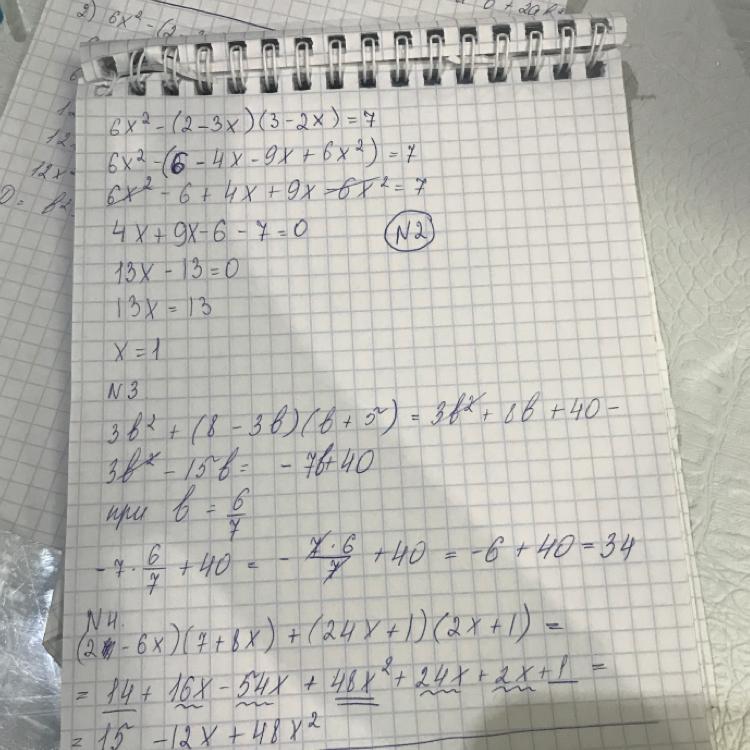 2) 6x² - (2
6x² - (2 - 3x)(3 - 2x) = 7
6x² - (6 - 4x - 9x + 6x²) = 7
6x² - 6 + 4x + 9x - 6x² = 7
4x + 9x - 6 - 7 = 0
N2
13x - 13 = 0
13x = 13
x = 1
N3
3в² + (8 - 3в)(в + 5) = 3в² + 8в + 40 -
3в² - 15в = - 7в + 40
при в = 6/7
-7 · 6/7 + 40 = - 7·6/7 + 40 = -6 + 40 = 34
N4.
(2 - 6x)(7 + 8x) + (24x + 1)(2x + 1) =
= 14 + 16x - 54x + 48x² + 24x + 2x + 1 =
= 15 - 12x + 48x²